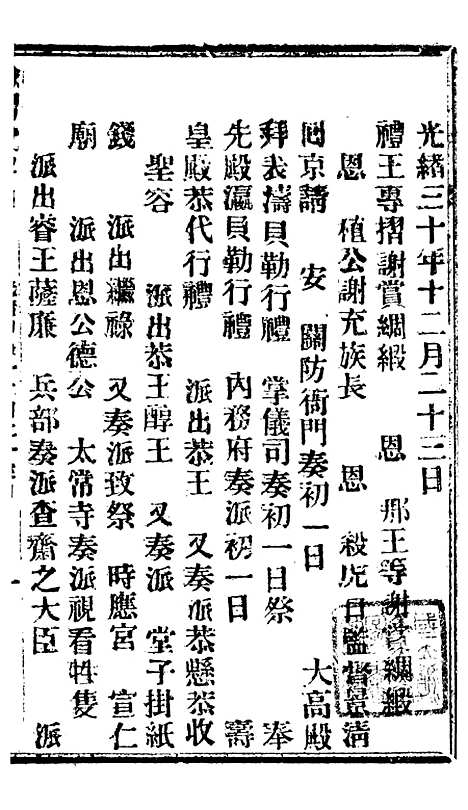 光緒三十年十二月二十三日
禮王專摺謝賞綢緞　恩　那王等謝賞綢緞
恩　植公謝充族長　恩　殺虎口監督景清
回京請　安　關防衙門奏初一日　大高殿
拜表濤貝勒行禮　掌儀司奏初一日祭　奉
先殿瀛貝勒行禮　內務府奏派初一日　壽
皇殿恭代行禮　派出恭王　又奏派恭懸恭收
聖容　派出恭王醇王　又奏派　堂子掛紙
錢　派出繼祿　又奏派致祭　時應宮　宣仁
廟　派出恩公德公　太常寺奏派視看牲隻
派出睿王薩廉　兵部奏派查齋之大臣　派